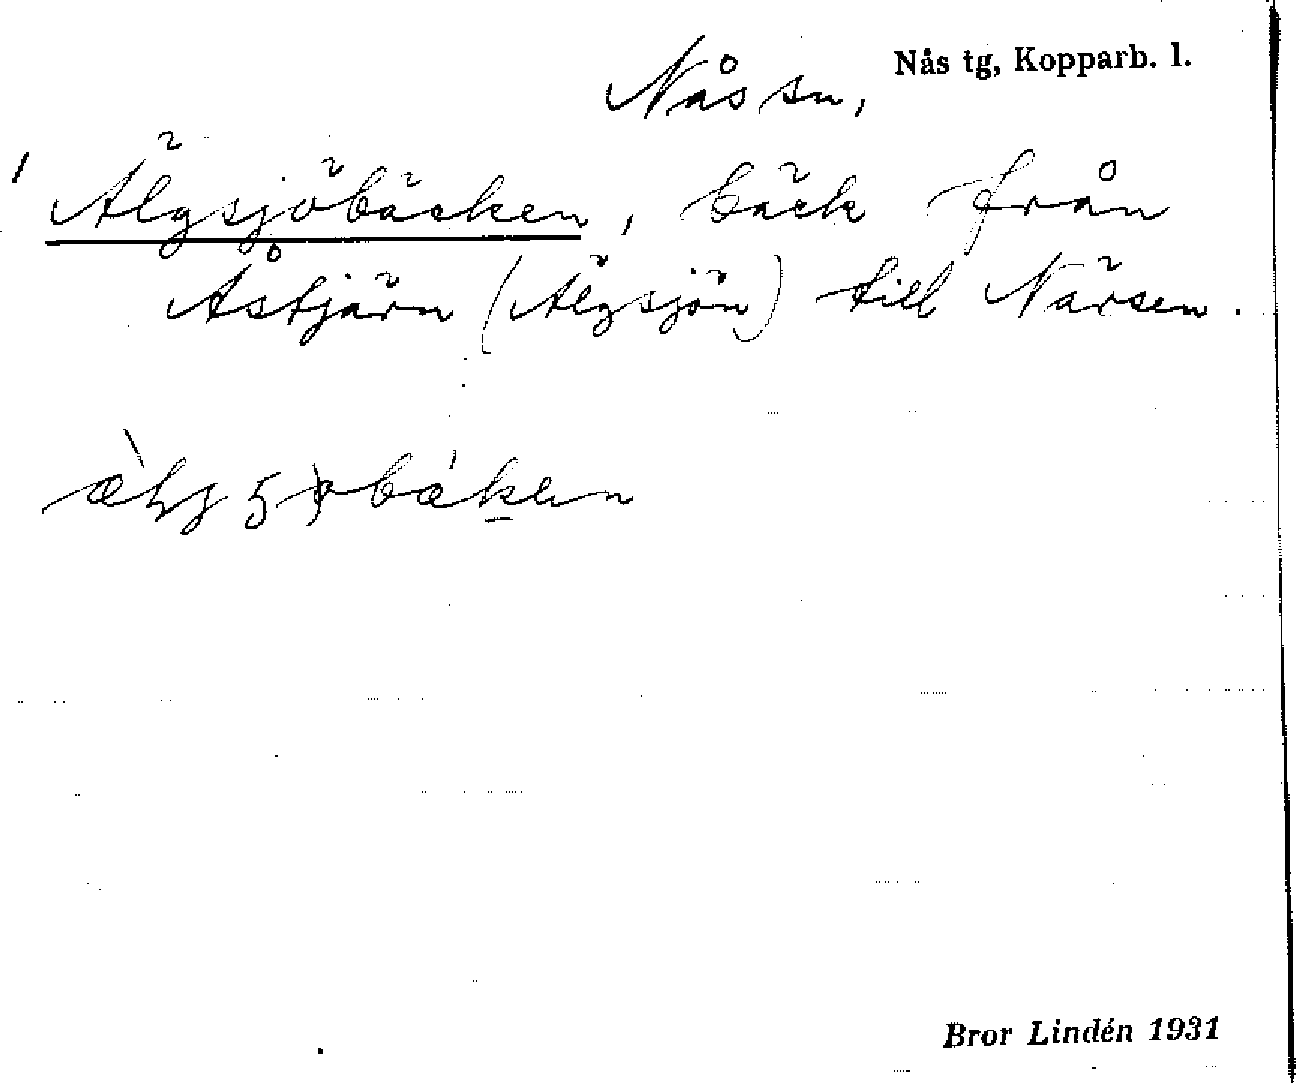 Nås tg, Kopparb. l.
Nås sn,
Älgsjöbäcken, bäck från
Åstjärn (Älgsjön) till Närsen.
Bror Lindén 1931